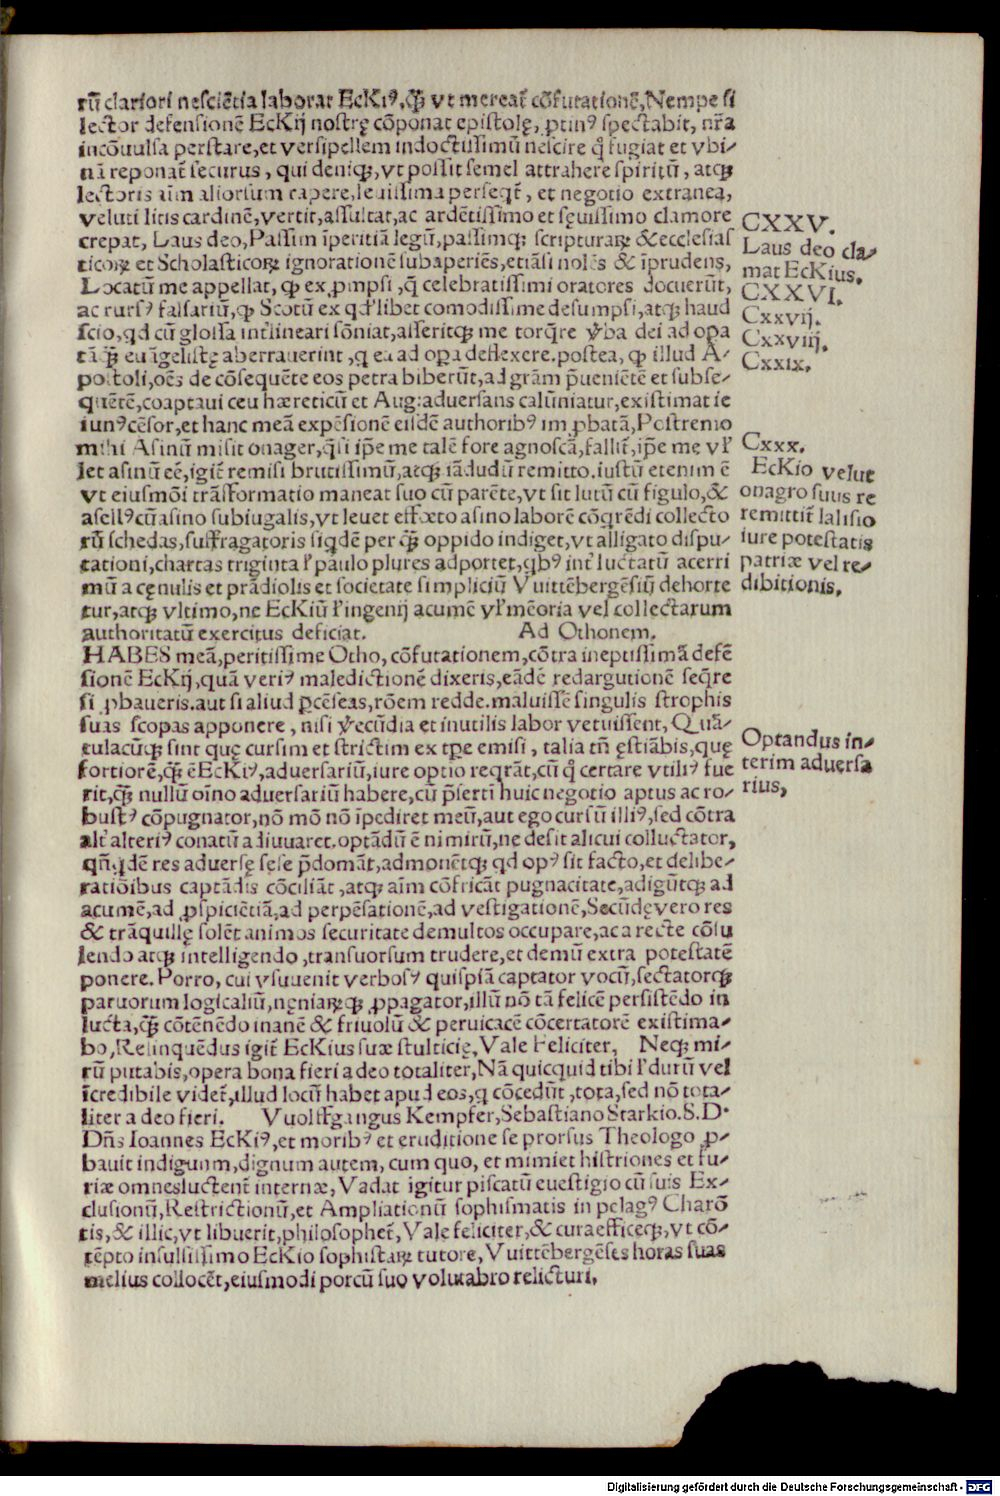 rū clariori nesciētia laborat EcKiꝰ, q̄ꝫ vt mereat̄ cōfutationē, Nempe si
lector defensionē EcKij nostrę cōponat epistolę, ꝓtinꝰ spectabit, nr̄a
incōuulsa perstare, et versipellem indoctissimū nescire q̄ fugiat et vbi⸗
nā reponat̄ securus, qui deniqꝫ, vt possit semel attrahere spiritū, atqꝫ
lectoris aīm aliorsum capere, leuissima perseqt̄, et negotio extranea,
veluti litis cardinē, vertit, assultat, ac ardētissimo et sęuissimo clamore
crepat, Laus deo, Passim īperitiā legū, passimqꝫ scripturaꝝ &ecclesias
ticoꝝ et Scholasticoꝝ ignorationē subaperiēs, etiāsi nolēs & īprudens,
Locatū me appellat, ꝙ ex ꝓmpsi, q̄ celebratissimi oratores docuerūt,
ac rursꝰ falsariū, ꝙ Scotū ex qdl̄ibet comodissime desumpsi, atqꝫ haud
scio, qd cū glossa int̄lineari sōniat, asseritqꝫ me torq̄re v̄ba dei ad opa
tāq̄ꝫ euāgelistę aberrauerint, q ea ad oꝑa deflexere. postea, ꝙ illud A⸗
postoli, oēs de cōsequēte eos petra biberūt, ad grām p̄ueniētē et subse⸗
quētē, coaptaui ceu hæreticū et Aug: aduersans calūniatur, existimat ie
iunꝰcēsor, et hanc meā expēsionē eisdē authoribꝰ im ꝓbatā, Postremo
mihi Asinū misit onager, q̄si ip̄e me talē fore agnoscā, fallit̄, ip̄e me vl̄
let asinū eē, igit̄ remisi brutissimū, atqꝫ iādudū remitto. iustū etenim ē
vt eiusmōi trāsformatio maneat suo cū parēte, vt sit lutū cū figulo, &
asellꝰcū asino subiugalis, vt leuet effœto asino laborē cōgrēdi collecto
rū schedas, suffragatoris siqdē per q̄ꝫ oppido indiget, vt alligato dispu⸗
tationi, chartas triginta l̄ paulo plures adportet, qbꝰ int̄ luctatū acerri
mū a cęnulis et prādiolis et societate simpliciū Vuittēbergēsiū dehorte
tur, atqꝫ vltimo, ne EcKiū l̄ ingenij acumē vl̄ mēoria vel collectarum
authoritatū exercitus deficiat. Ad Othonem.
HABES meā, peritissime Otho, cōfutationem, cōtra ineptissimā defē
sionē EcKij, quā veriꝰ maledictionē dixeris, eādē redargutionē seq̄re
si ꝓbaueris. aut si aliud ꝑcēseas, rōem redde. maluissē singulis strophis
suas scopas apponere, nisi v̄ecūdia et inutilis labor vetuissent, Quā⸗
tulacūqꝫ sint quę cursim et strictim ex tꝑe emisi, talia tn̄ ęstiābis, quę
fortiorē, q̄ꝫ ē EcKiꝰ, aduersariū, iure optio reqrāt, cū q̊ certare vtiliꝰ fue
rit, q̄ꝫ nullū oīno aduersariū habere, cū p̄sertī huic negotio aptus ac ro⸗
bustꝰ cōpugnator, nō mō nō īpediret meū, aut ego cursū illiꝰ, sed cōtra
alt̄ alteriꝰ conatū adiuuaret. optādū ē nimirū, ne desit alicui colluctator,
qn̄qdē res aduersę sese p̄domāt, admonētqꝫ qd opꝰ sit facto, et delibe⸗
ratiōibus captādis cōciliāt, atqꝫ aīm cōfricāt pugnacitate, adigūtqꝫ ad
acumē, ad ꝓspiciētiā, ad perpēsationē, ad vestigationē, Secūdę vero res
& trāquillę solēt animos securitate demultos occupare, ac a recte cōsu
lendo atqꝫ intelligendo, transuorsum trudere, et demū extra potestatē
ponere. Porro, cui vsuuenit verbosꝰ quispiā captator vocū, sectatorqꝫ
paruorum logicaliū, nęniaꝝqꝫ ꝓpagator, illū nō tā felicē persistēdo in
lucta, q̄ꝫ cōtēnēdo inanē & friuolū & peruicacē cōcertatorē existima⸗
bo, Relinquēdus igit̄ EcKius suæ stulticię, Vale Feliciter, Neqꝫ mi⸗
rū putabis, opera bona fieri a deo totaliter, Nā quicquid tibi l̄ durū vel
īcredibile videt̄, illud locū habet apud eos, q cōcedūt, tota, sed nō tota⸗
liter a deo fieri. Vuolffgangus Kempfer, Sebastiano Starkio. S. D.
Dn̄s Ioannes EcKiꝰ, et moribꝰ et eruditione se prorsus Theologo ꝓ⸗
bauit indignum, dignum autem, cum quo, et mimi et histriones et fu⸗
riæ omnes luctent̄ internæ, Vadat igitur piscatū euestigio cū suis Ex⸗
clusionū, Restrictionū, et Ampliationū sophismatis in pelagꝰ Charō
tis, & illic, vt libuerit, philosophet̄, Vale feliciter, & cura efficeqꝫ, vt cō⸗
tēpto insulsissimo EcKio sophistaꝝ tutore, Vuittēbergēses horas suas
melius collocēt, eiusmodi porcū suo volutabro relicturi.
CXXV.
Laus deo cla⸗
mat EcKius.
CXXVI.
Cxxvij.
Cxxviij.
Cxxix.
Cxxx.
EcKio velut
onagro suus re
remittit̄ lalisio
iure potestatis
patriæ vel re⸗
dibitionis.
Optandus in⸗
terim aduersa
rius,
Digitalisierung gefördert durch die Deutsche Forschungsgemeinschaft - DFG